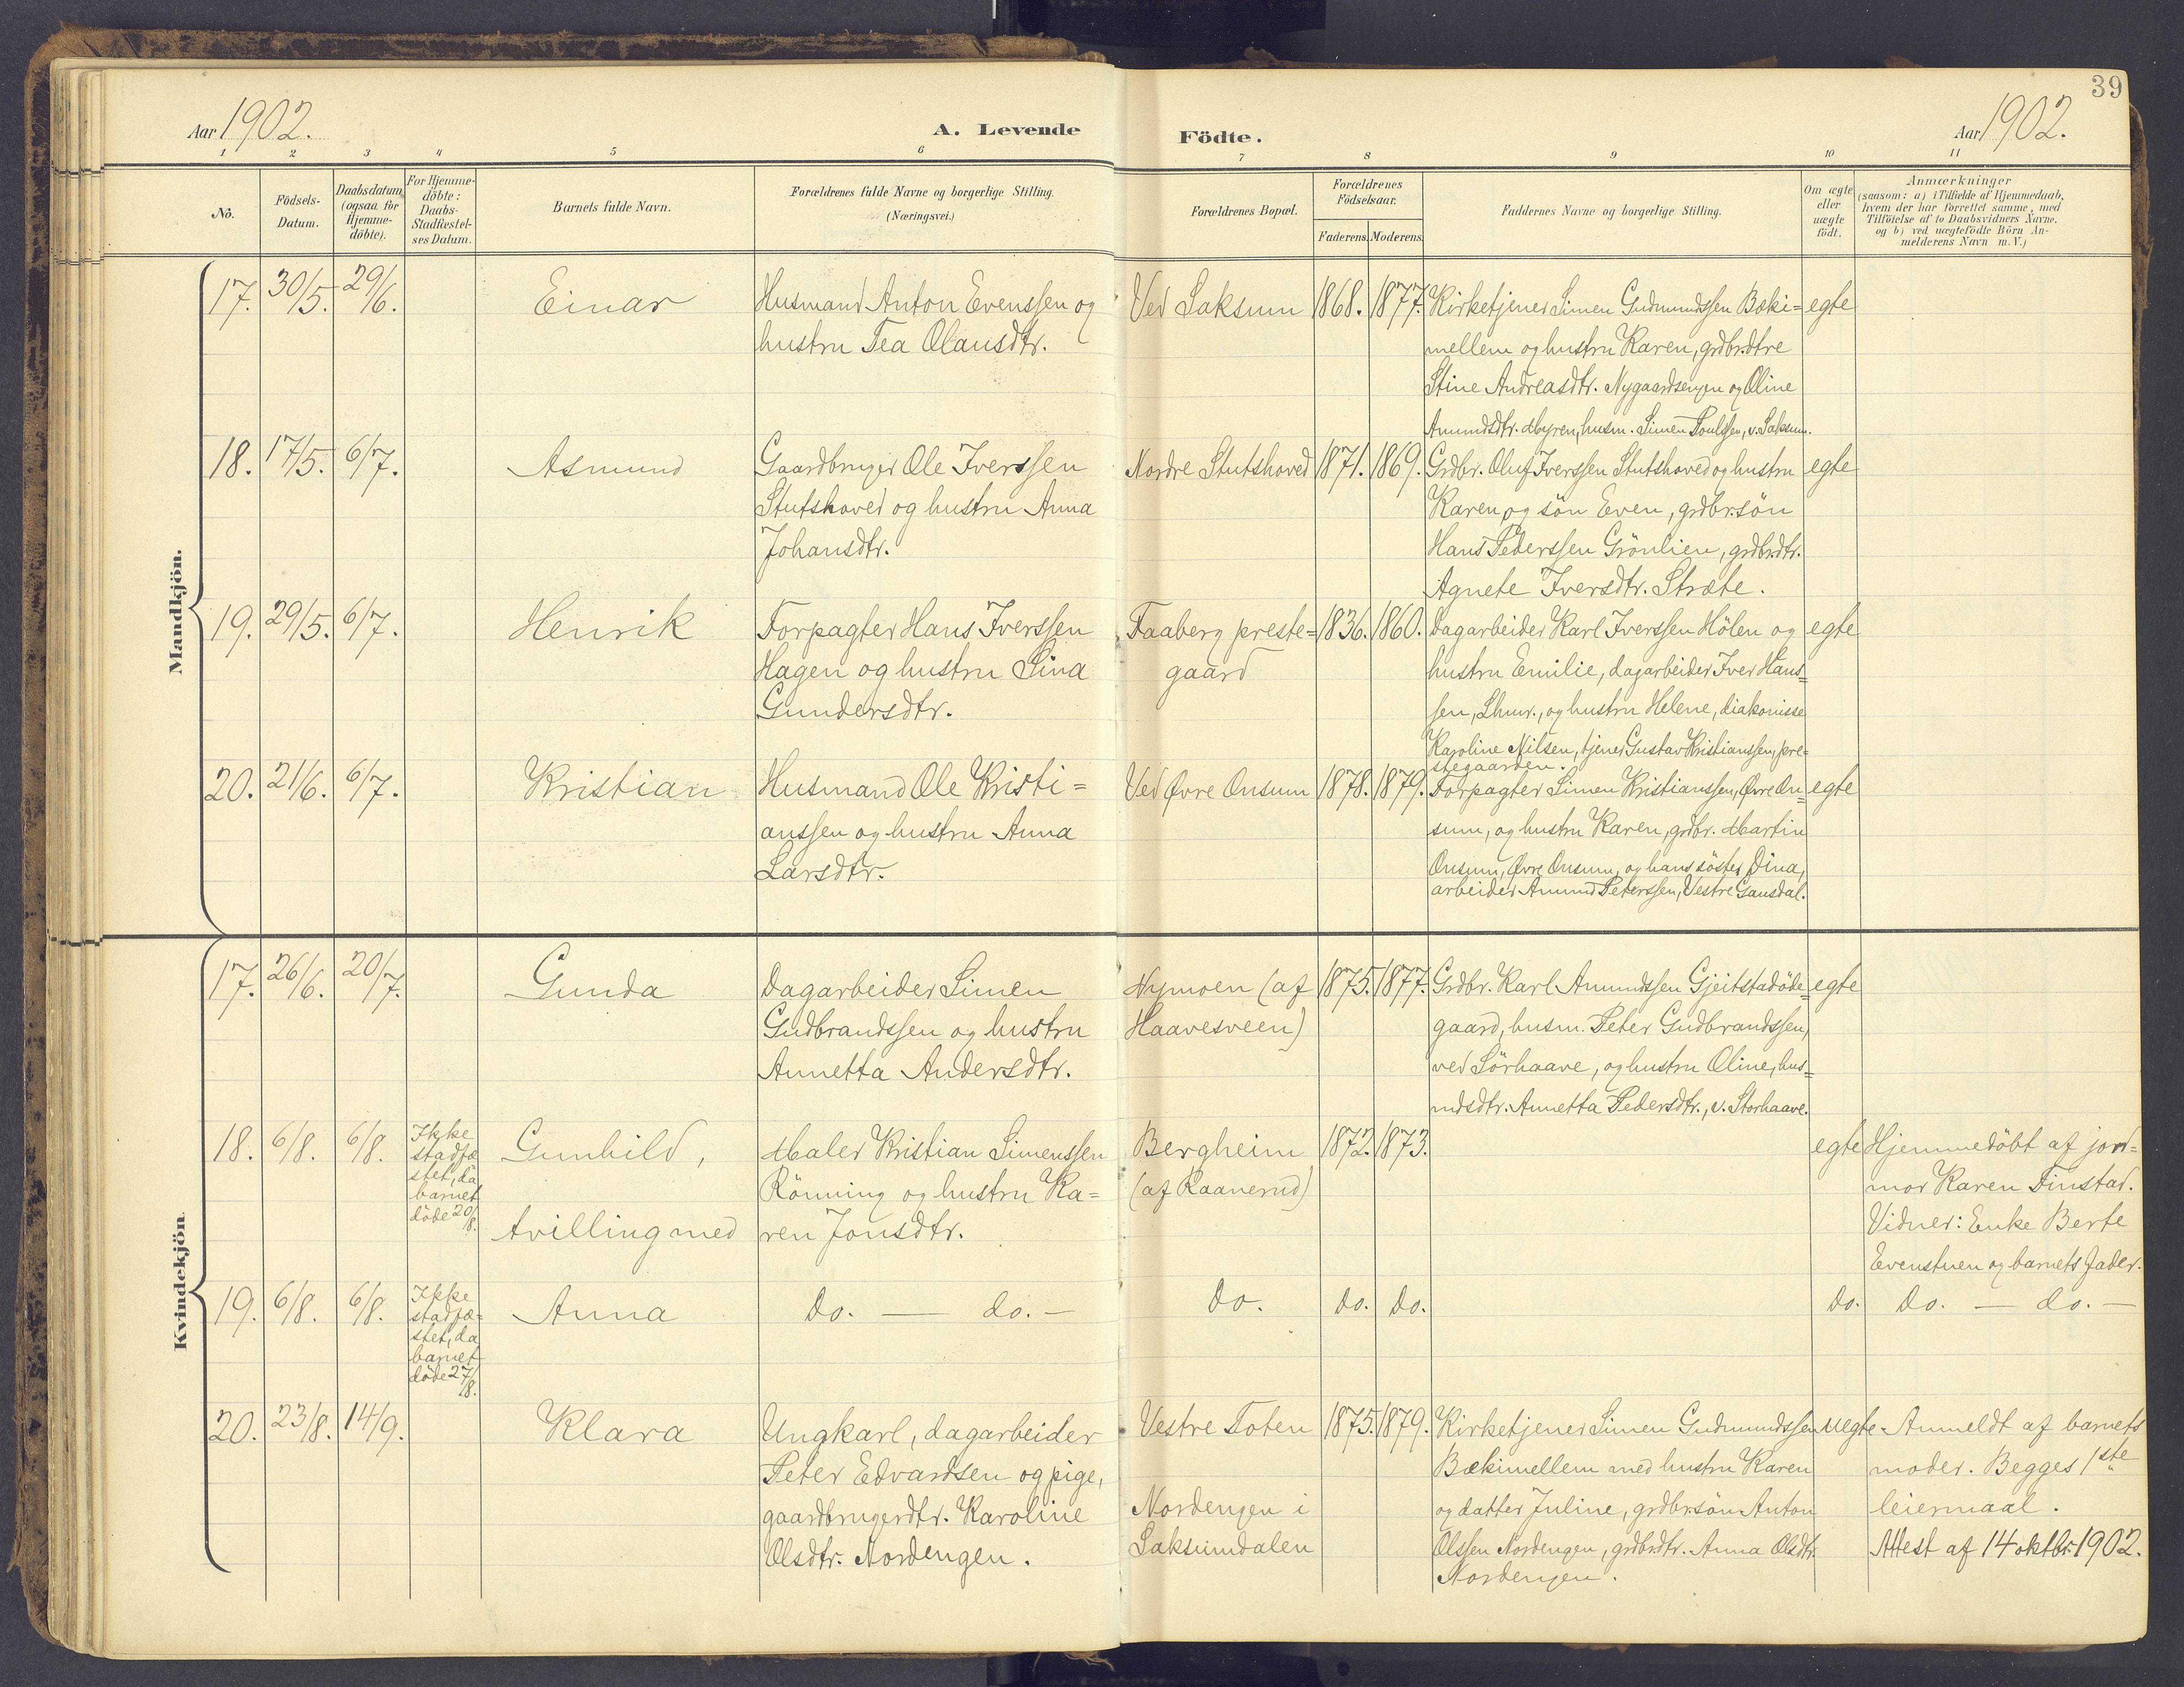 39
Aar 1902.
A. Levende
Födte.
Aar 1902.
1 2 3 4 5 6 7 8 9 10 11
No.
Födsels-
Datum.
Daabsdatum
(ogsaa for
Hjemme-
döbte).
For Hjemme-
döbte:
Daabs-
Stadfæstel-
ses Datum.
Barnets fulde Navn.
Forældrenes fulde Navne og borgerlige Stilling.
(Næringsvei.)
Forældrenes Bopæl.
Forældrenes
Födselsaar.
Faderens. Moderens.
Faddernes Navne og borgerlige Stilling.
Om ægte
eller
uægte
födt.
Anmærkninger
(saasom: a) i Tilfælde af Hjemmedaab,
hvem der har forrettet samme, med
Tilföielse af to Daabsvidners Navne,
og b) ved uægtefödte Börn An-
melderens Navn m. V.)
Mandkjön.
17. 30/5. 29/6.
Einar
Husmand Anton Evenssen og
hustru Tea Olausdtr.
Ved Saksum
1868. 1877.
Kirketjener Simen Gudmundssen Bæki=
mellem og hustru Karen, grdbr.dtre
Stine Andreasdtr. Nygaardsengen og Oline
Amundsdtr. Myren, husm. Simen Poulssen, v. Saksum.
egte
18. 17/5. 6/7.
Asmund
Gaardbruger Ole Iverssen
Stutshoved og hustru Anna
Johansdtr.
Nordre Stutshoved
1871. 1869.
Grdbr. Oluf Iverssen Stutshoved og hustru
Karen og sön Even, grdbr.sön
Hans Pederssen Grönlien, grdbrdtr.
Agnete Iversdtr. Stræte.
egte
19. 29/5. 6/7.
Henrik
Forpagter Hans Iverssen
Hagen og hustru Sina
Gundersdtr.
Faaberg preste=
gaard
1836. 1860.
Dagarbeider Karl Iverssen Hölen og
hustru Emilie, dagarbeider Iver Hans=
sen, Lhmr., og hustru Helene, diakonisse
Karoline Nilsen, tjener Gustav Kristianssen, pre=
stegaarden.
egte
20. 21/6. 6/7.
Kristian
Husmand Ole Kristi=
anssen og hustru Anna
Larsdtr.
Ved Øvre Onsum
1878. 1879.
Forpagter Simen Kristianssen, Øvre On=
sum, og hustru Karen, grdbr. Martin
Onsum, Øvre Onsum, og hans söster Dina,
arbeider Amund Peterssen, Vestre Gausdal.
egte
Kvindekjön.
17. 26/6. 20/7.
Gunda
Dagarbeider Simen
Gudbrandssen og hustru
Annetta Andersdtr.
Nymoen (af
Haavesveen)
1875. 1877.
Grdbr. Karl Amundssen Gjeitstadöde=
gaard, husm. Peter Gudbrandssen,
ved Sörhaave, og hustru Oline, hus=
mdsdtr. Annetta Pedersdtr., v. Storhaave.
egte
18. 6/8. 6/8.
Ikke
stadfæ
stet, da
barnet
döde 20/8.
Gunhild,
tvilling med
Maler Kristian Simenssen
Rönning og hustru Ka=
ren Jonsdtr.
Bergheim
(af Raanerud)
1872. 1873.
egte
Hjemmedöbt af jord=
mor Karen Finstad.
Vidner: Enke Berte
Evenstuen og barnets fader.
19. 6/8. 6/8.
Ikke
stadfæ-
stet, da
barnet
döde 27/8.
Anna
do. — do. —
do.
do. do.
do.
do. — do. —
20. 23/8. 14/9.
Klara
Ungkarl, dagarbeider
Peter Edvardsen og pige,
gaardbrugerdtr. Karoline
Olsdtr. Nordengen.
Vestre Toten
Nordengen i
Saksumdalen
1875. 1879.
Kirketjener Simen Gudmundssen
Bækimellem med hustru Karen
og datter Juline, grdbr.sön Anton
Olssen Nordengen, grdbrdtr. Anna Olsdtr.
Nordengen.
uegte
Anmeldt af barnets
moder. Begges 1ste
leiermaal.
Attest af 14 oktbr. 1902.